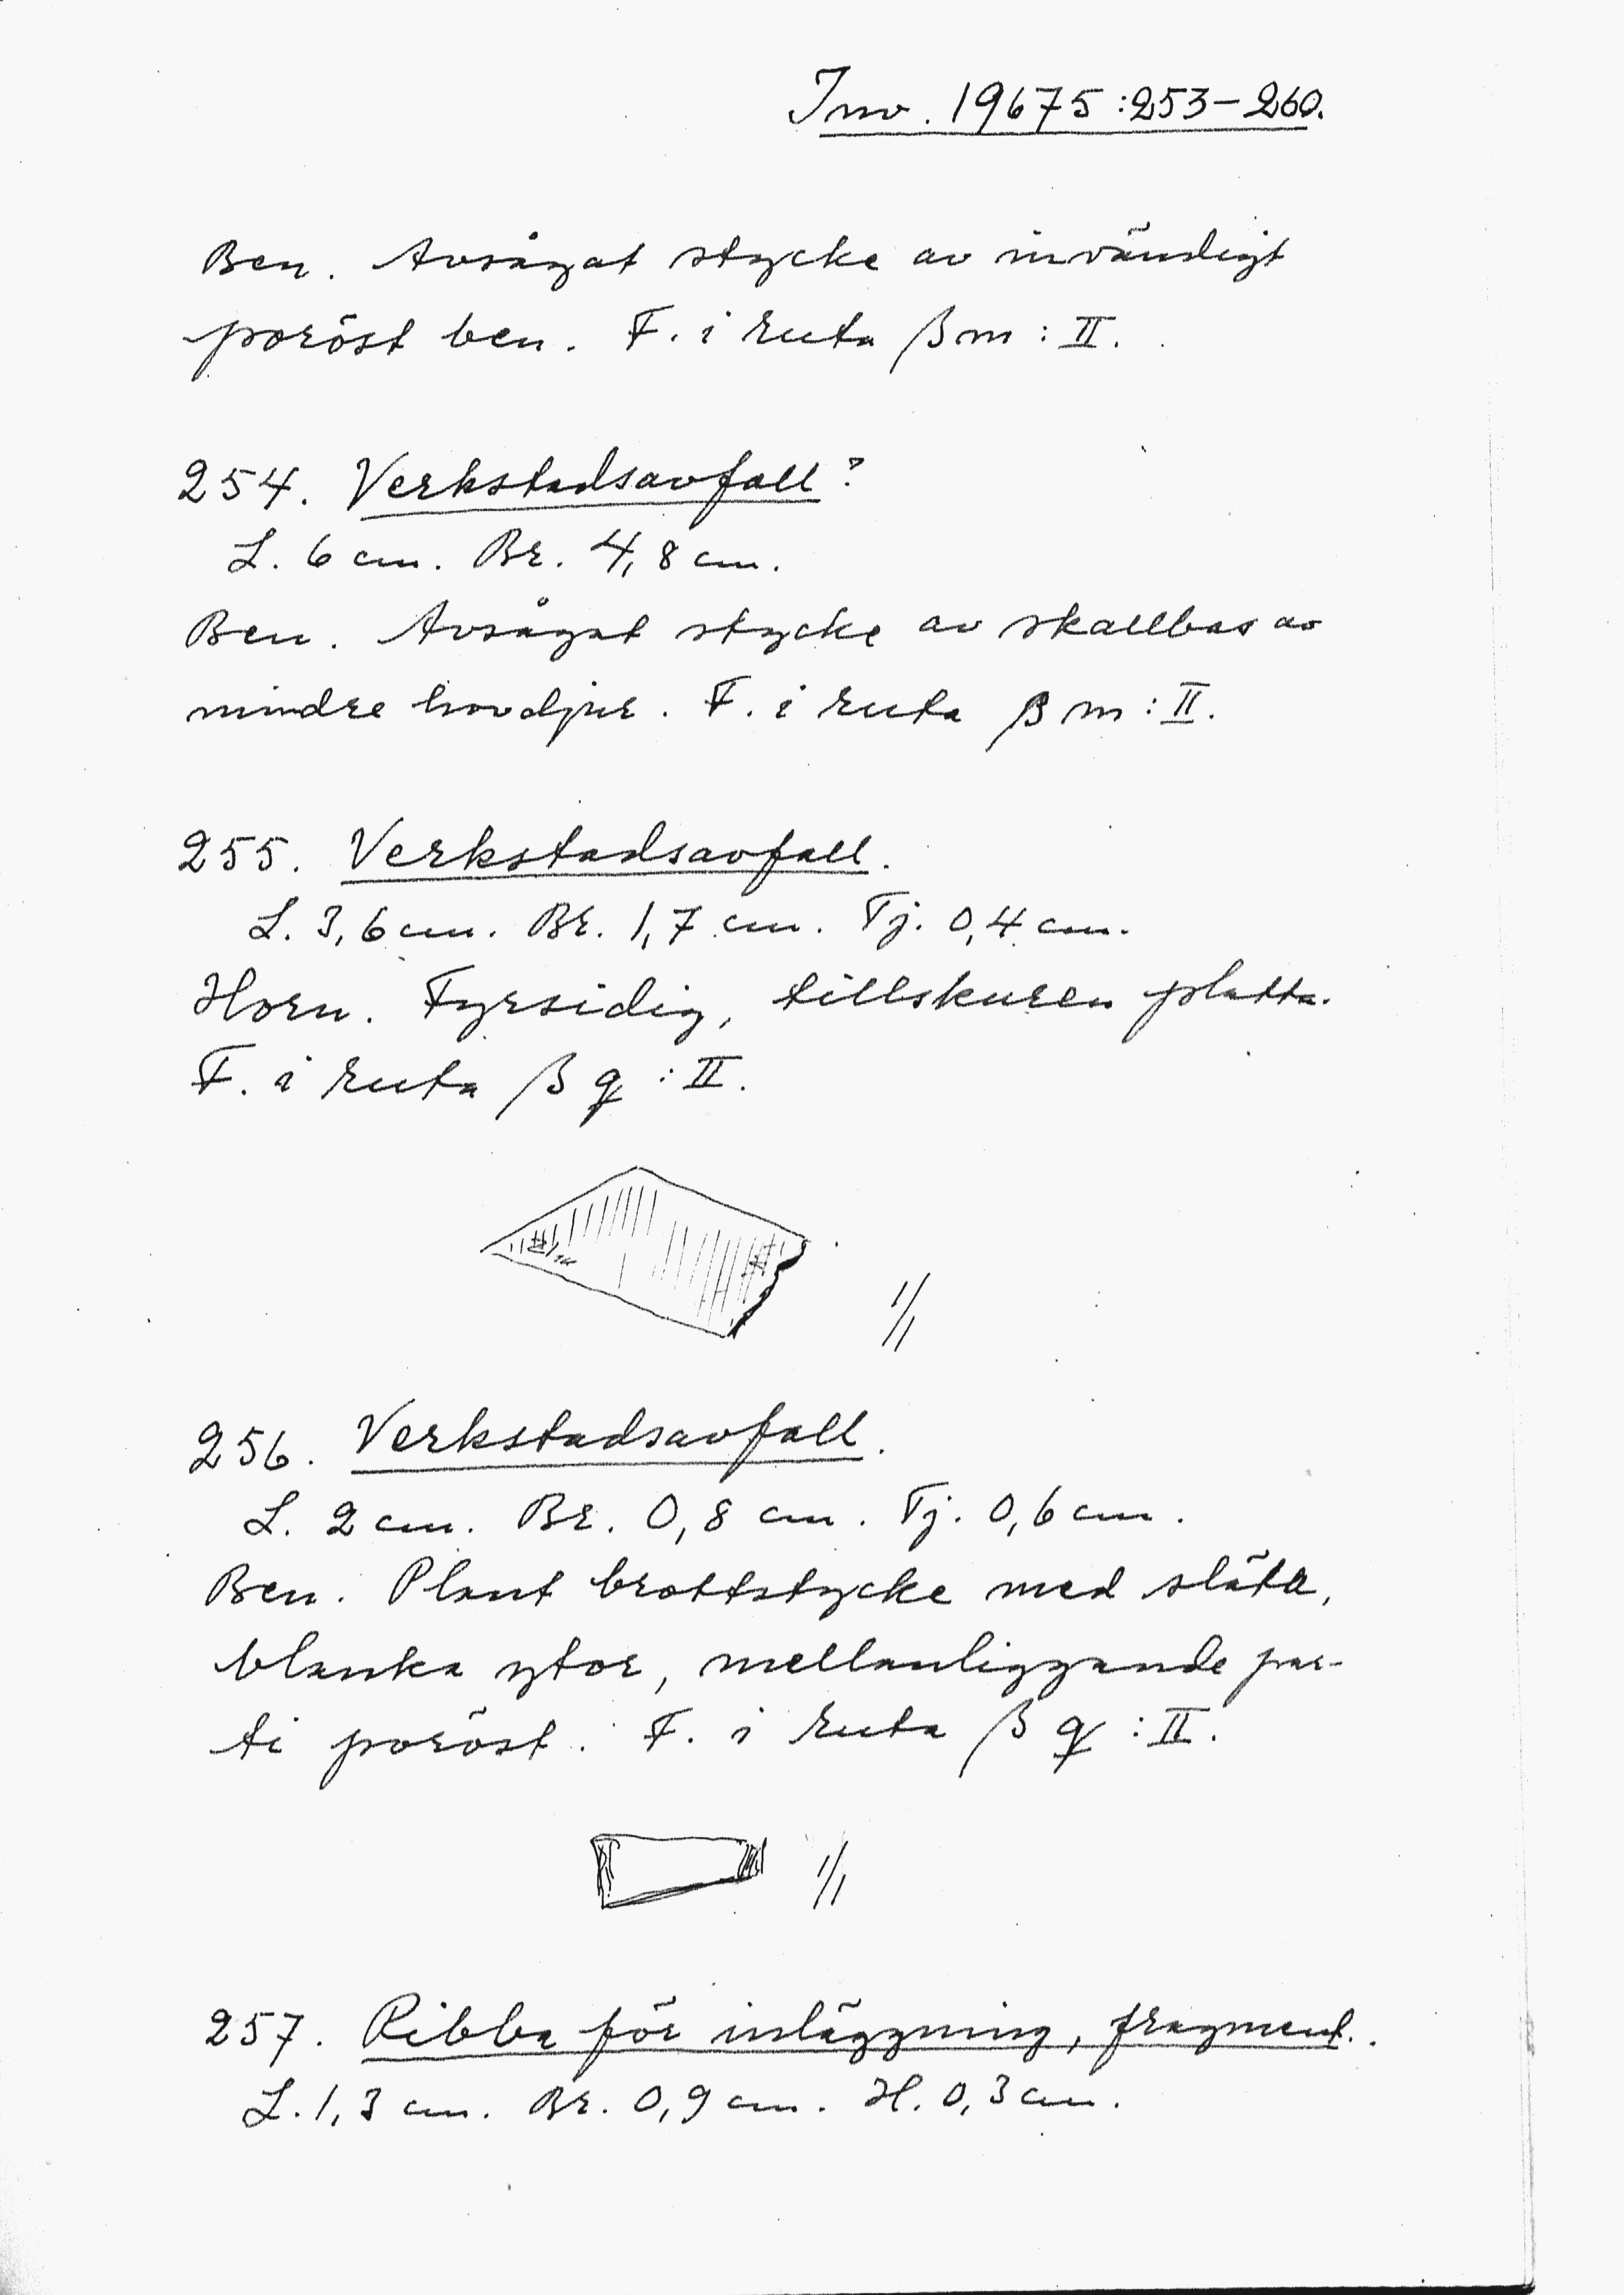 Inv. 19675:253-260.
Ben. Avsågat stycke av invändigt
poröst ben. F. i ruta βm:II.
254. Verkstadsavfall?
L. 6 cm. Br. 4,8 cm.
Ben. Avsågat stycke av skallbas av
mindre hovdjur. F. i ruta βm:II.
255. Verkstadsavfall.
L. 3,6 cm. Br. 1,7 cm. Tj. 0,4 cm.
Horn. Fyrsidig, tillskuren platta.
F. i ruta βq:II.
1/1
256. Verkstadsavfall.
L. 2 cm. Br. 0,8 cm. Tj. 0,6 cm.
Ben. Plant brottstycke med släta,
blanka ytor, mellanliggande par-
ti poröst. F. i ruta βq:II.
1/1
257. Ribba för inläggning, fragment.
L. 1,3 cm. Br. 0,9 cm. H. 0,3 cm.